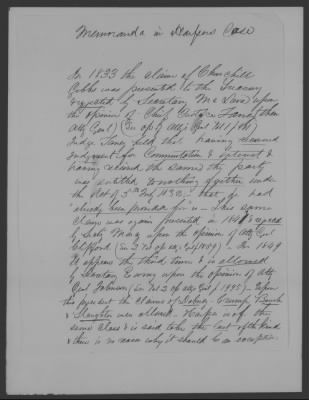 Memoranda in Harpers Case
In 1833 the claim of Churchill
Gibbs was presented to the Treasury
& rejected by Secretary McLane upon
the opinion of Chief Justice Taney (then
Atty Genl) (See op of Atty Genl
Judge Taney held that having received
Judgment for Commutation & interest &
having received the same the party
was entitled to nothing further under
the Act of 5th July 1832 - that had
already been provided for it - This same
claim was again presented in 184 & rejected
by Secty upon the opinion of Atty Genl
Clifford (See 2 Vol op Atty Genl p 1889) - In 1849
it appears the third time & is allowed
by Secretary Ewing upon the opinion of Atty
Genl Johnson (See Vol 2 op Atty Genl p 1995) - Upon
this precedent the claims of Dabney - Crump &
& Slaughter were allowed. Harper is of the
same class & is said to be the last of the kind
& there is no reason why it should be an exception.